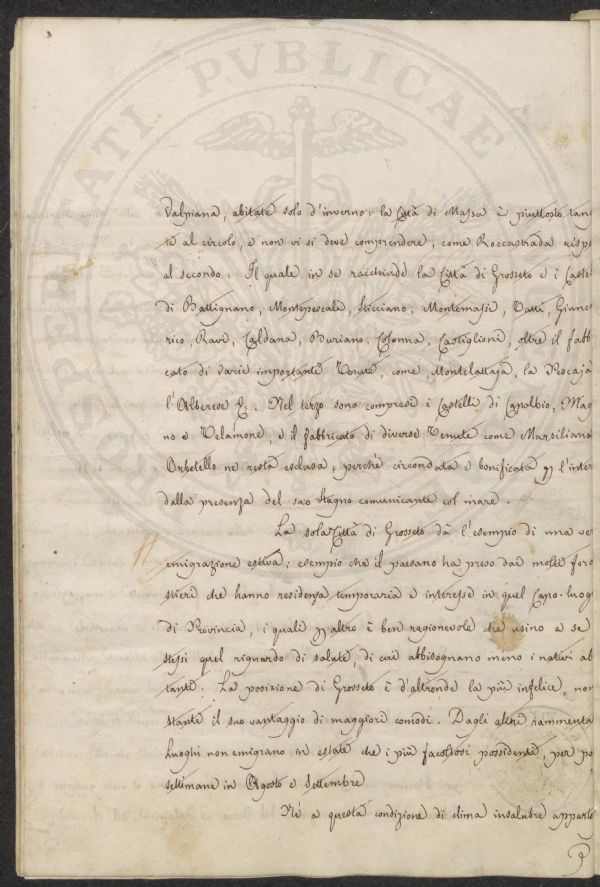 PROSPERITATI PVBLICAE
Valpiana, abitate solo d'inverno; la Città di Massa è piuttosto tan
te al circolo, e non vi si deve comprendere, come Roccastrada rispe
al secondo. Il quale in se racchiude la Città di Grosseto e i Castel
di Battignano, Montepescali, Sticciano, Montemassi, Tatti, Giunca
rico, Ravi, Caldana, Buriano, Colonna, Castiglione, oltre il fabb
cato di varie importante Tenute, come Montelattaja, la Rocaja
l'Alberese &. Nel terzo sono compresi i Castelli di Capalbio, Mag
no e Telamone, e il fabbricato di diverse Tenute come Marsiliana
Orbetello ne resta esclusa, perchè circondata e bonificata p l'inter
dalla presenza del suo Stagno comunicante col mare.
La sola Città di Grosseto dà l'esempio di una ver
emigrazione estiva; esempio che il paesano ha preso dai molti fore
stieri che hanno residenza temporaria e interesse in quel Capo-luog
di Provincia, i quali p altro è ben ragionevole che usino a se
stessi quel riguardo di salute, di cui abbisognano meno i nativi ab
tanti. La posizione di Grosseto è d'altronde la più infelice, non
stante il suo vantaggio di maggiori comodi. Dagli altri rammenta
luoghi non emigrano in estate che i più facoltosi possidenti, per po
settimane in Agosto e Settembre
Nè a questa condizione di clima insalubre apparte